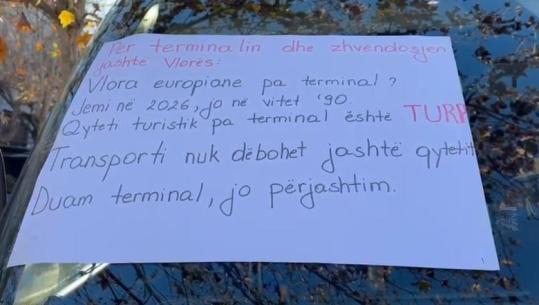 Për terminalin dhe zhvendosjen
jashtë Vlorës:
Vlora europiane pa terminal?
Jemi në 2026, jo në vitet '90.
Qyteti turistik pa terminal është TURP
Transporti nuk dëbohet jashtë qytetit
Duam terminal, jo përjashtim.